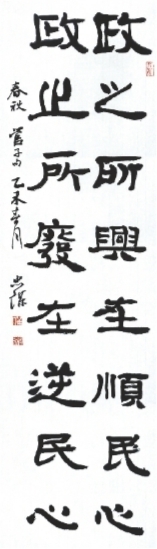 政之所興在順民心
政之所廢在逆民心
春秋 管子句 乙未春月